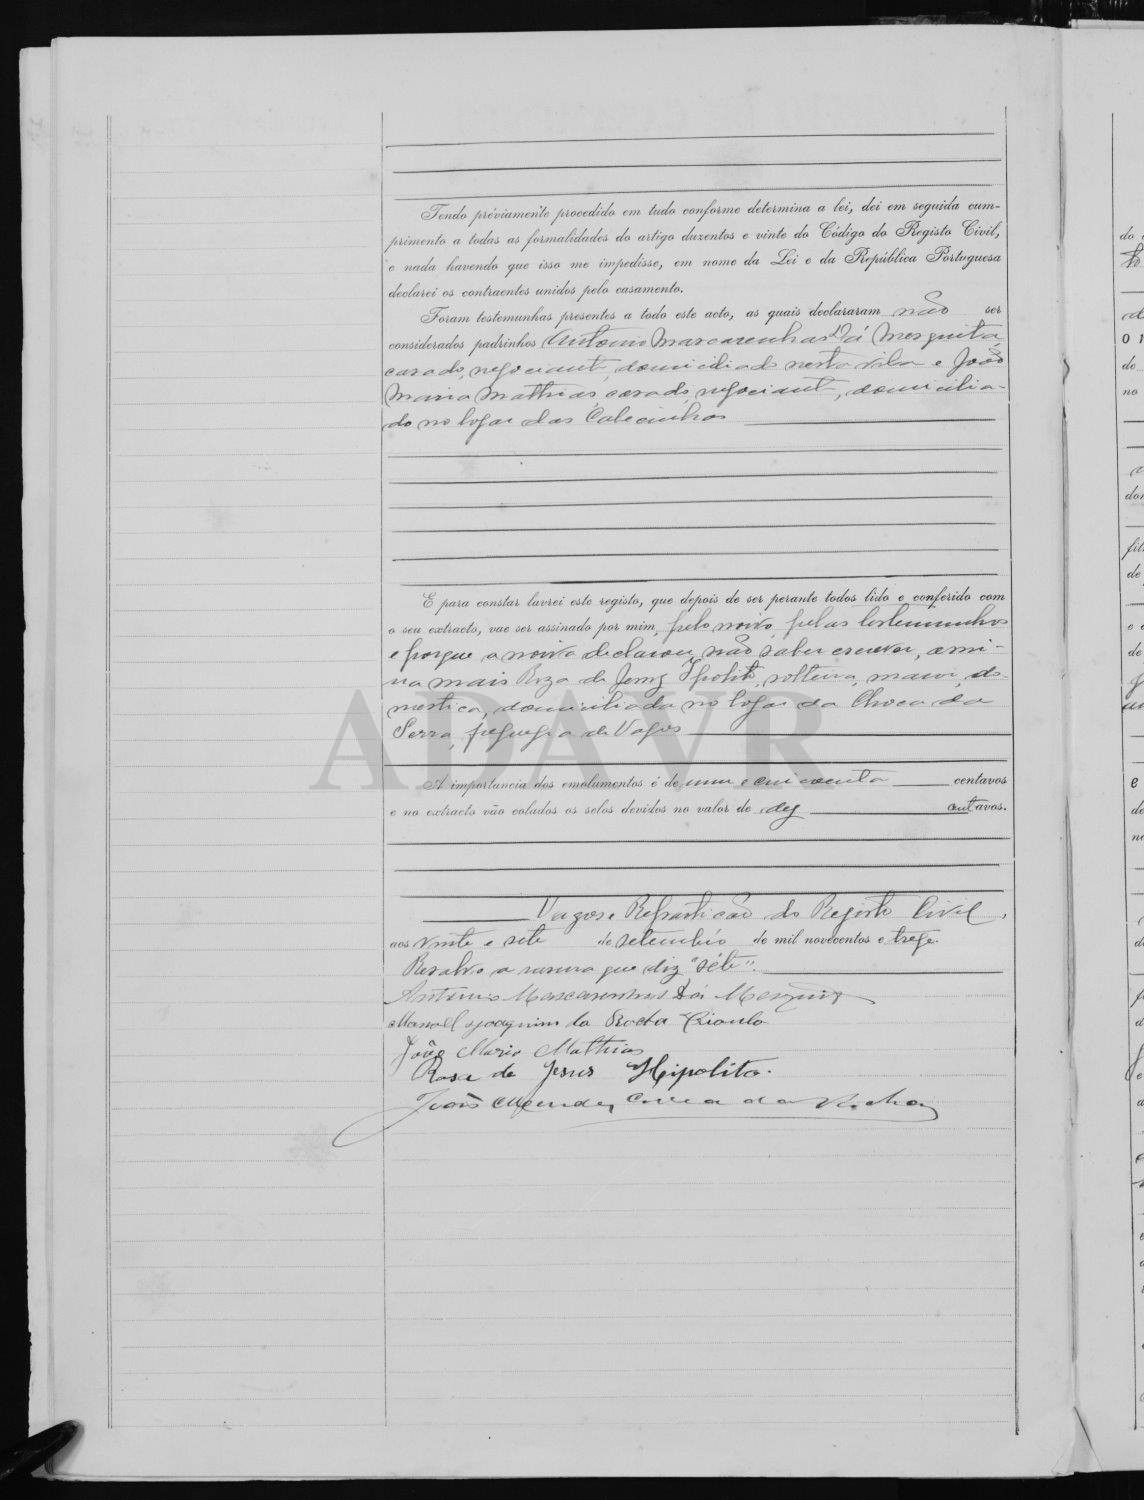 Tendo préviamente procedido em tudo conforme determina a lei, dei em seguida cum-
primento a todas as formalidades do artigo duzentos e vinte do Código do Registo Civil,
e nada havendo que isso me impedisse, em nome da Lei e da República Portuguesa
declarei os contraentes unidos pelo casamento.
Foram testemunhas presentes a todo este acto, as quais declararam não ser
considerados padrinhos Antonio Mascarenhas Sá Mesquita
casado, negociante, domiciliado nesta vila e João
Maria Mathias, casado, negociante, domicilia-
do no logar das Calecinhas
E para constar lavrei este registo, que depois de ser perante todos lido e conferido com
o seu extracto, vae ser assinado por mim, pelo noivo, pelas testemunhas
e porque a noiva declarou não saber escrever, assi-
na mais Roza de Jesus Ipolito, solteira, maior, do-
mestica, domiciliada no logar da Choca da
Serra, freguezia de Vagos
A importancia dos emolumentos é de um e cincoenta centavos
e no extracto vão colados os selos devidos no valor de dez centavos.
Vagos e Repartição do Registo Civil,
aos vinte e sete de setembro de mil novecentos e treze.
Resalvo a rasura que diz "séte".
Antonio Mascarenhas Sá Mesquita
Manoel Joaquim da Rocha
João Maria Mathias
Rosa de Jesus Hipolito.
João Mendes Correia da Rocha
ADAVR